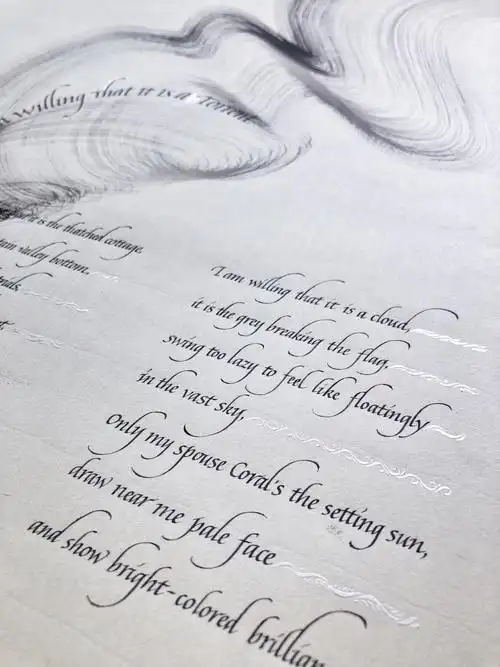 willing that it is a Torrent
it is the thatched cottage.
valley bottom,
I am willing that it is a cloud,
it is the grey breaking the flag,
swing too lazy to feel like floatingly
in the vast sky,
Only my spouse Coral's the setting sun,
draw near me pale face
and show bright-colored brillian